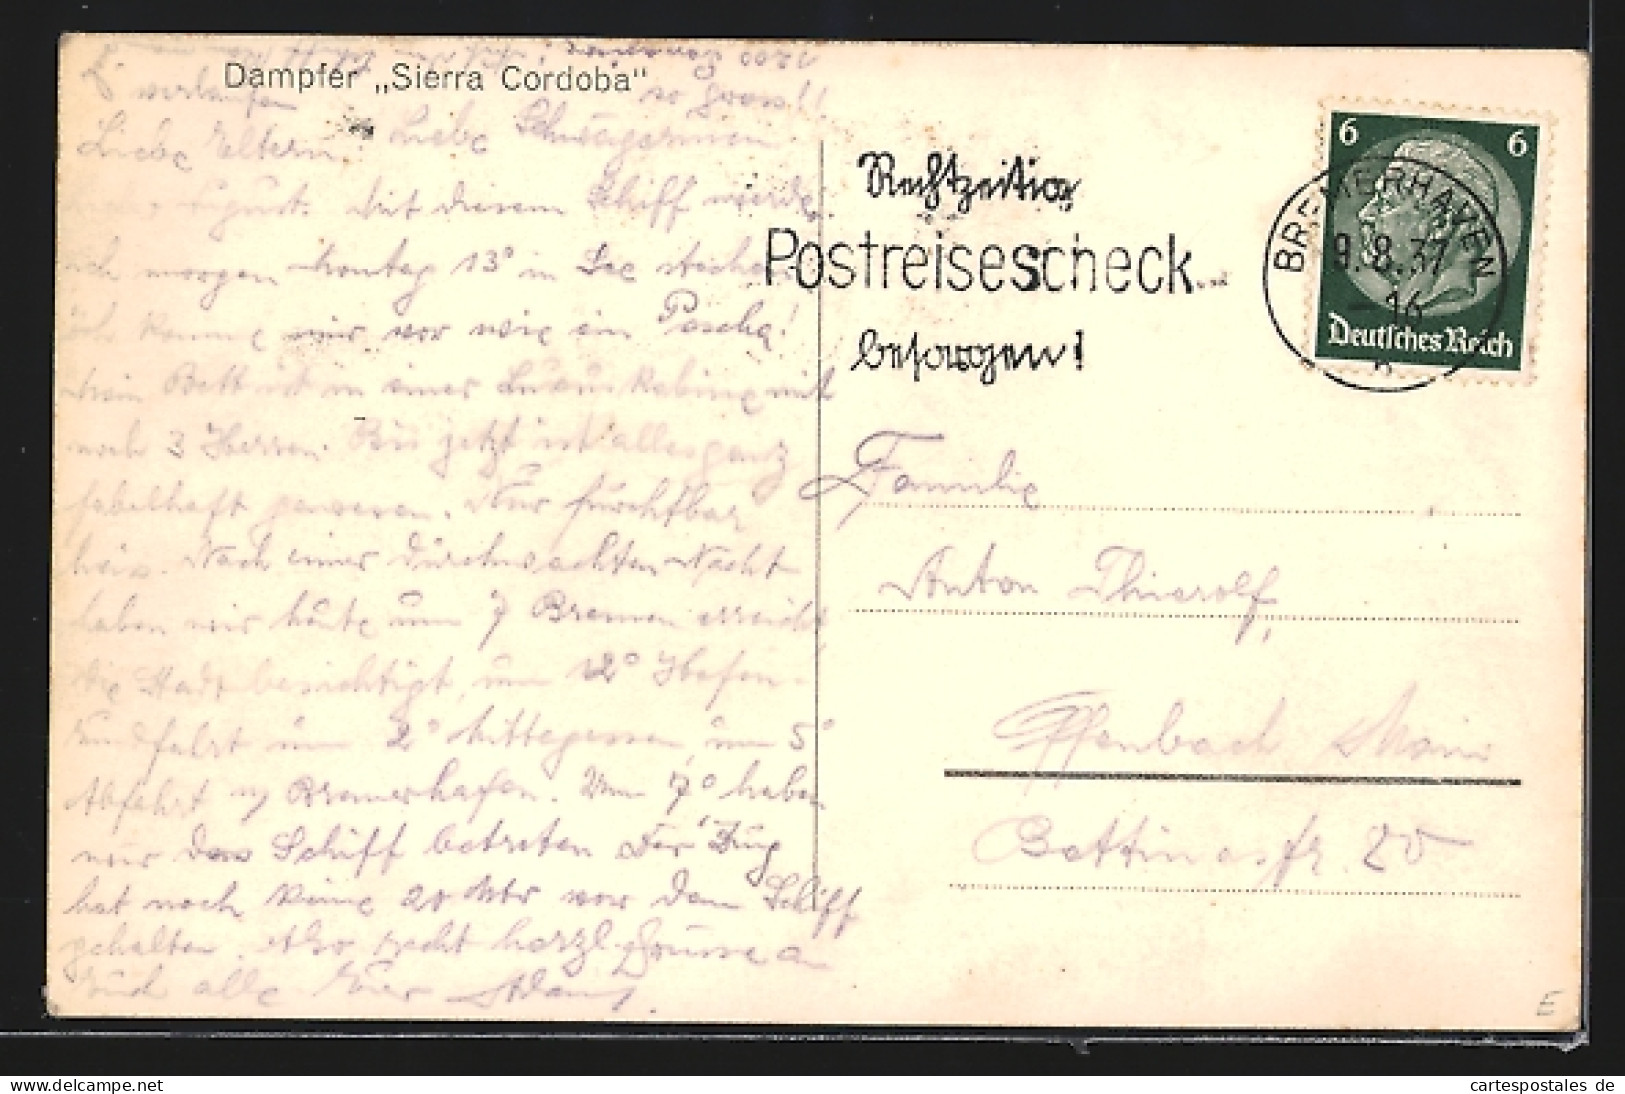 1200 Personen
Dampfer „Sierra Cordoba"
verlaufen so gross!!
Liebe Eltern Liebe Schwägerinnen
August. Mit diesem Schiff werde
ich morgen Montag 13° in See stechen.
ich komme mir vor wie ein Pascha!
Mein Bett ist in einer Luxus Kabine mit
noch 3 Herren. Bis jetzt ist alles ganz
fabelhaft gewesen. Nur furchtbar
heis. Nach einer durchwachten Nacht
haben wir heute um 7 Bremen erreicht,
die Stadt besichtigt, um 12° Hafen-
rundfahrt um 2° Mittagessen, um 5°
Abfahrt n/ Bremerhafen. Um 7° haben
wir das Schiff betreten Der Zug
hat noch keine 20 Mtr vor dem Schiff
gehalten. Also recht herzl. Grüsse an
Euch alle Euer Adam.
Rechtzeitig
Postreisescheck
besorgen!
BREMERHAVEN
9.8.37
16
n
6 6
Deutsches Reich
Familie
Anton Thierolf,
Offenbach Main
Bettinastr. 20
E
www.delcampe.net
cartespostales de